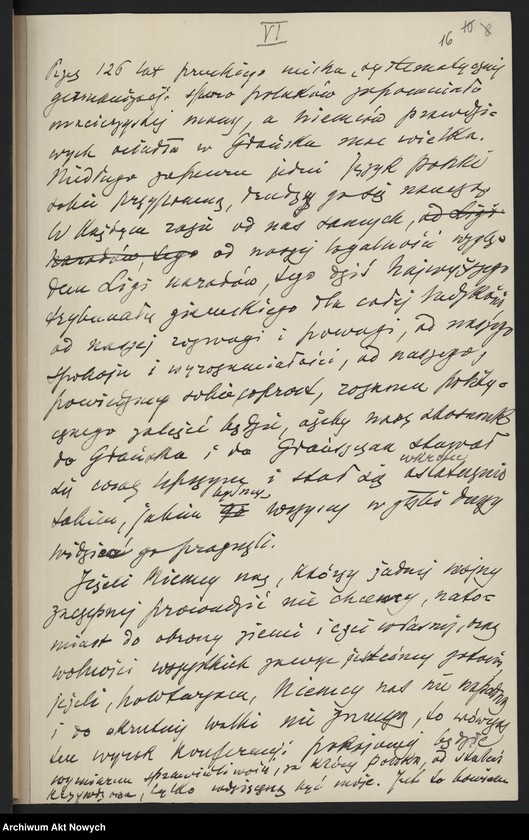 VI
16 10 8
Przez 126 lat pruskiego ucisku, systematycznej
germanizacji sporo polaków zapomniało
macierzystej mowy, a niemców prawdzi-
wych osiadła w Gdańsku moc wielka.
Niedługo zapewne jedni język polski
sobie przypomną, drudzy go się nauczą.
W każdym razie od nas samych, od Ligi
Narodów, tego od naszej legalności wzglę-
dem Ligi narodów, tego dziś najwyższego
trybunału dla całej ludzkości,
od naszej rozwagi i powagi, od naszego
spokoju i wyrozumiałości, od naszego,
powiedzmy sobie, rozumu polity-
cznego zależeć będzie, ażeby nasz stosunek
do Gdańska i do Gdańszczan stawał
się coraz lepszym i stał się wkrótce ostatecznie
takim, jakim byśmy wszyscy w głębi duszy
widzieć go pragnęli.
Jeżeli Niemcy nas, którzy żadnej wojny
zaczepnej prowadzić nie chcemy, nato-
miast do obrony ziemi i czci własnej, oraz
wolności wszystkich zawsze jesteśmy gotowi,
jeżeli, powtarzam, Niemcy nas nie napadną
i do okrutnej walki nie zmuszą, to wówczas
ten wyrok Konferencji pokojowej będzie
wymiarem sprawiedliwości, za który Polska, od stuleci
krzywdzona, tylko wdzięczną być może. Jest to bowiem
Archiwum Akt Nowych